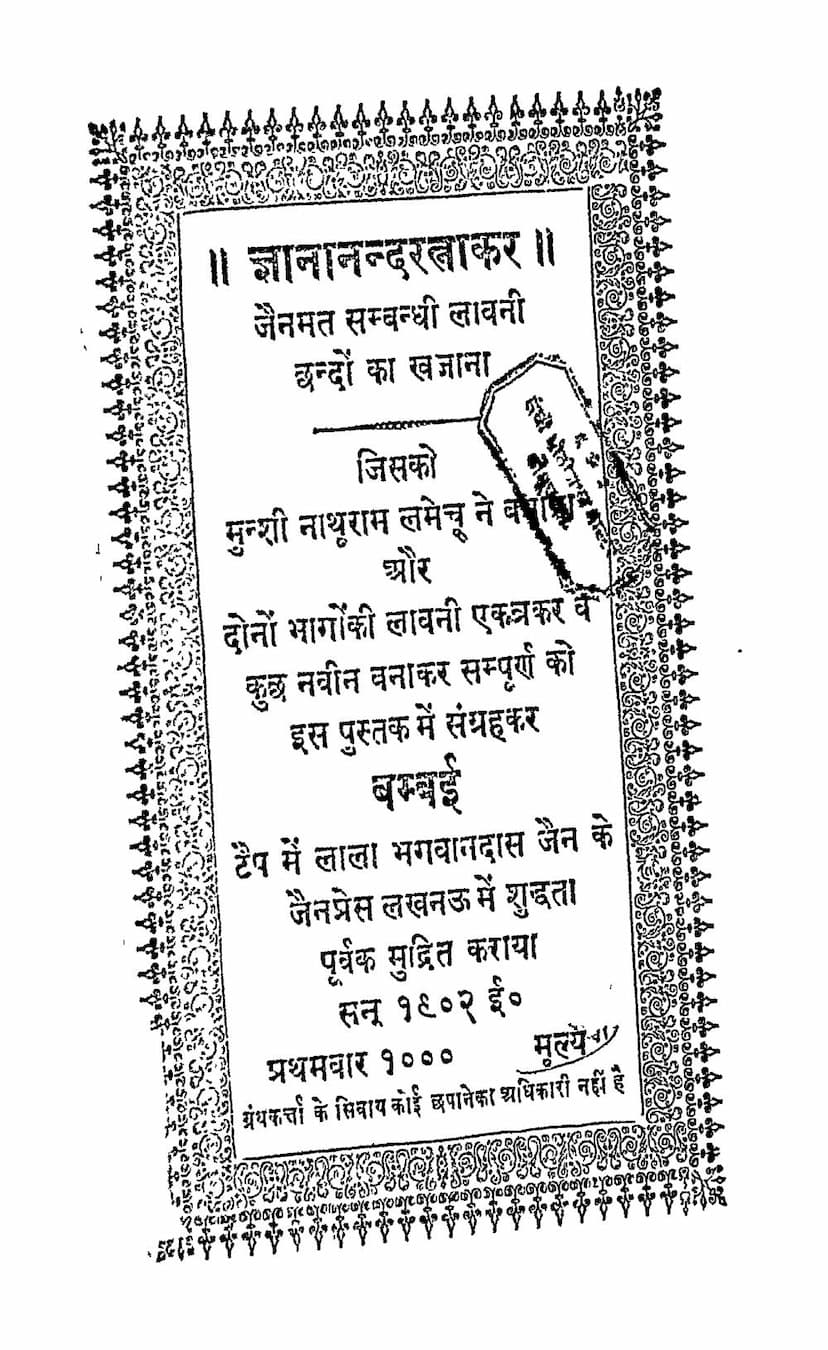 ॥ ज्ञानानन्दरत्नाकर ॥
जैनमत सम्बन्धी लावनी
छन्दों का खजाना
जिसको
मुन्शी नाथूराम लमेचू ने
और
दोनों भागोंकी लावनी एकत्रकर व
कुछ नवीन वनाकर सम्पूर्ण को
इस पुस्तक में संग्रहकर
बम्बई
टैप में लाला भगवानदास जैन के
जैनप्रेस लखनऊ में शुद्धता
पूर्वक मुद्रित कराया
सन् १९०२ ई०
प्रथमवार १००० मूल्य
ग्रंथकर्त्ता के सिवाय कोई छपानेका अधिकारी नहीं है